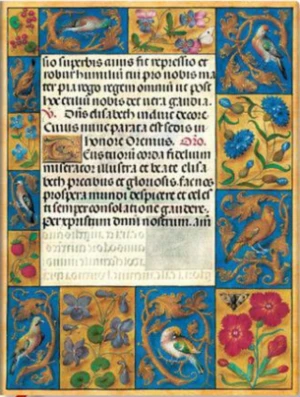 sio superbis anius fit repressio et
robur humiliū cui pro nobis ma
ter pia rego regem omniū ut post
hoc exiliū nobis det vera gaudia.
℣. Dñs elisabeth induit decore
Cuius munc parata est sedis in
honore Oremus. Oro.
corda fidelium
miserator illustra et beate elisa
beth precibus et gloriosis facnos
prospera mundi despicere et celes
ti semper consolatione gaudere.
Per xpristum dnm nostrum. am